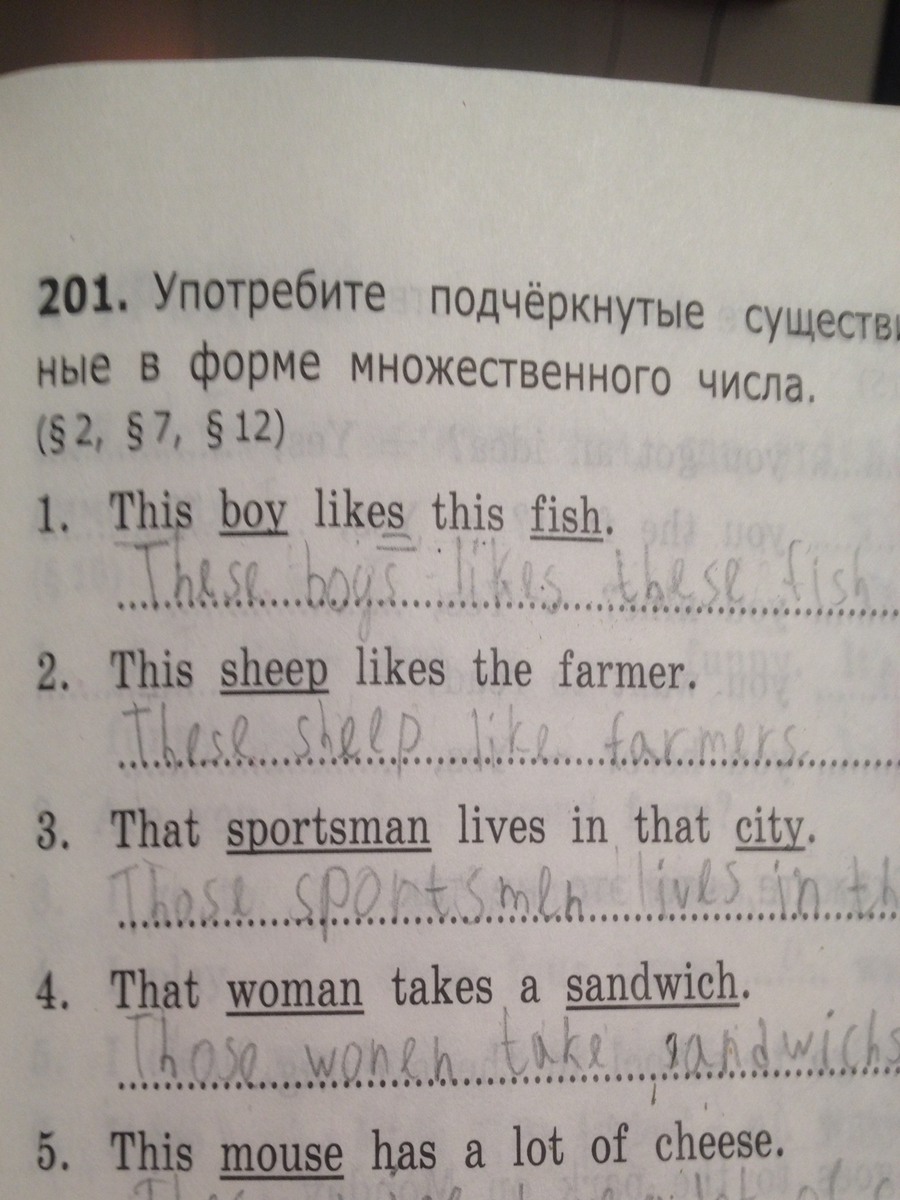 201. Употребите подчёркнутые существи
ные в форме множественного числа.
(§ 2, § 7, § 12)
1. This boy likes this fish.
These boys likes these fish
2. This sheep likes the farmer.
These sheep like farmers
3. That sportsman lives in that city.
Those sportsmen lives in th
4. That woman takes a sandwich.
Those wonen take sandwichs
5. This mouse has a lot of cheese.